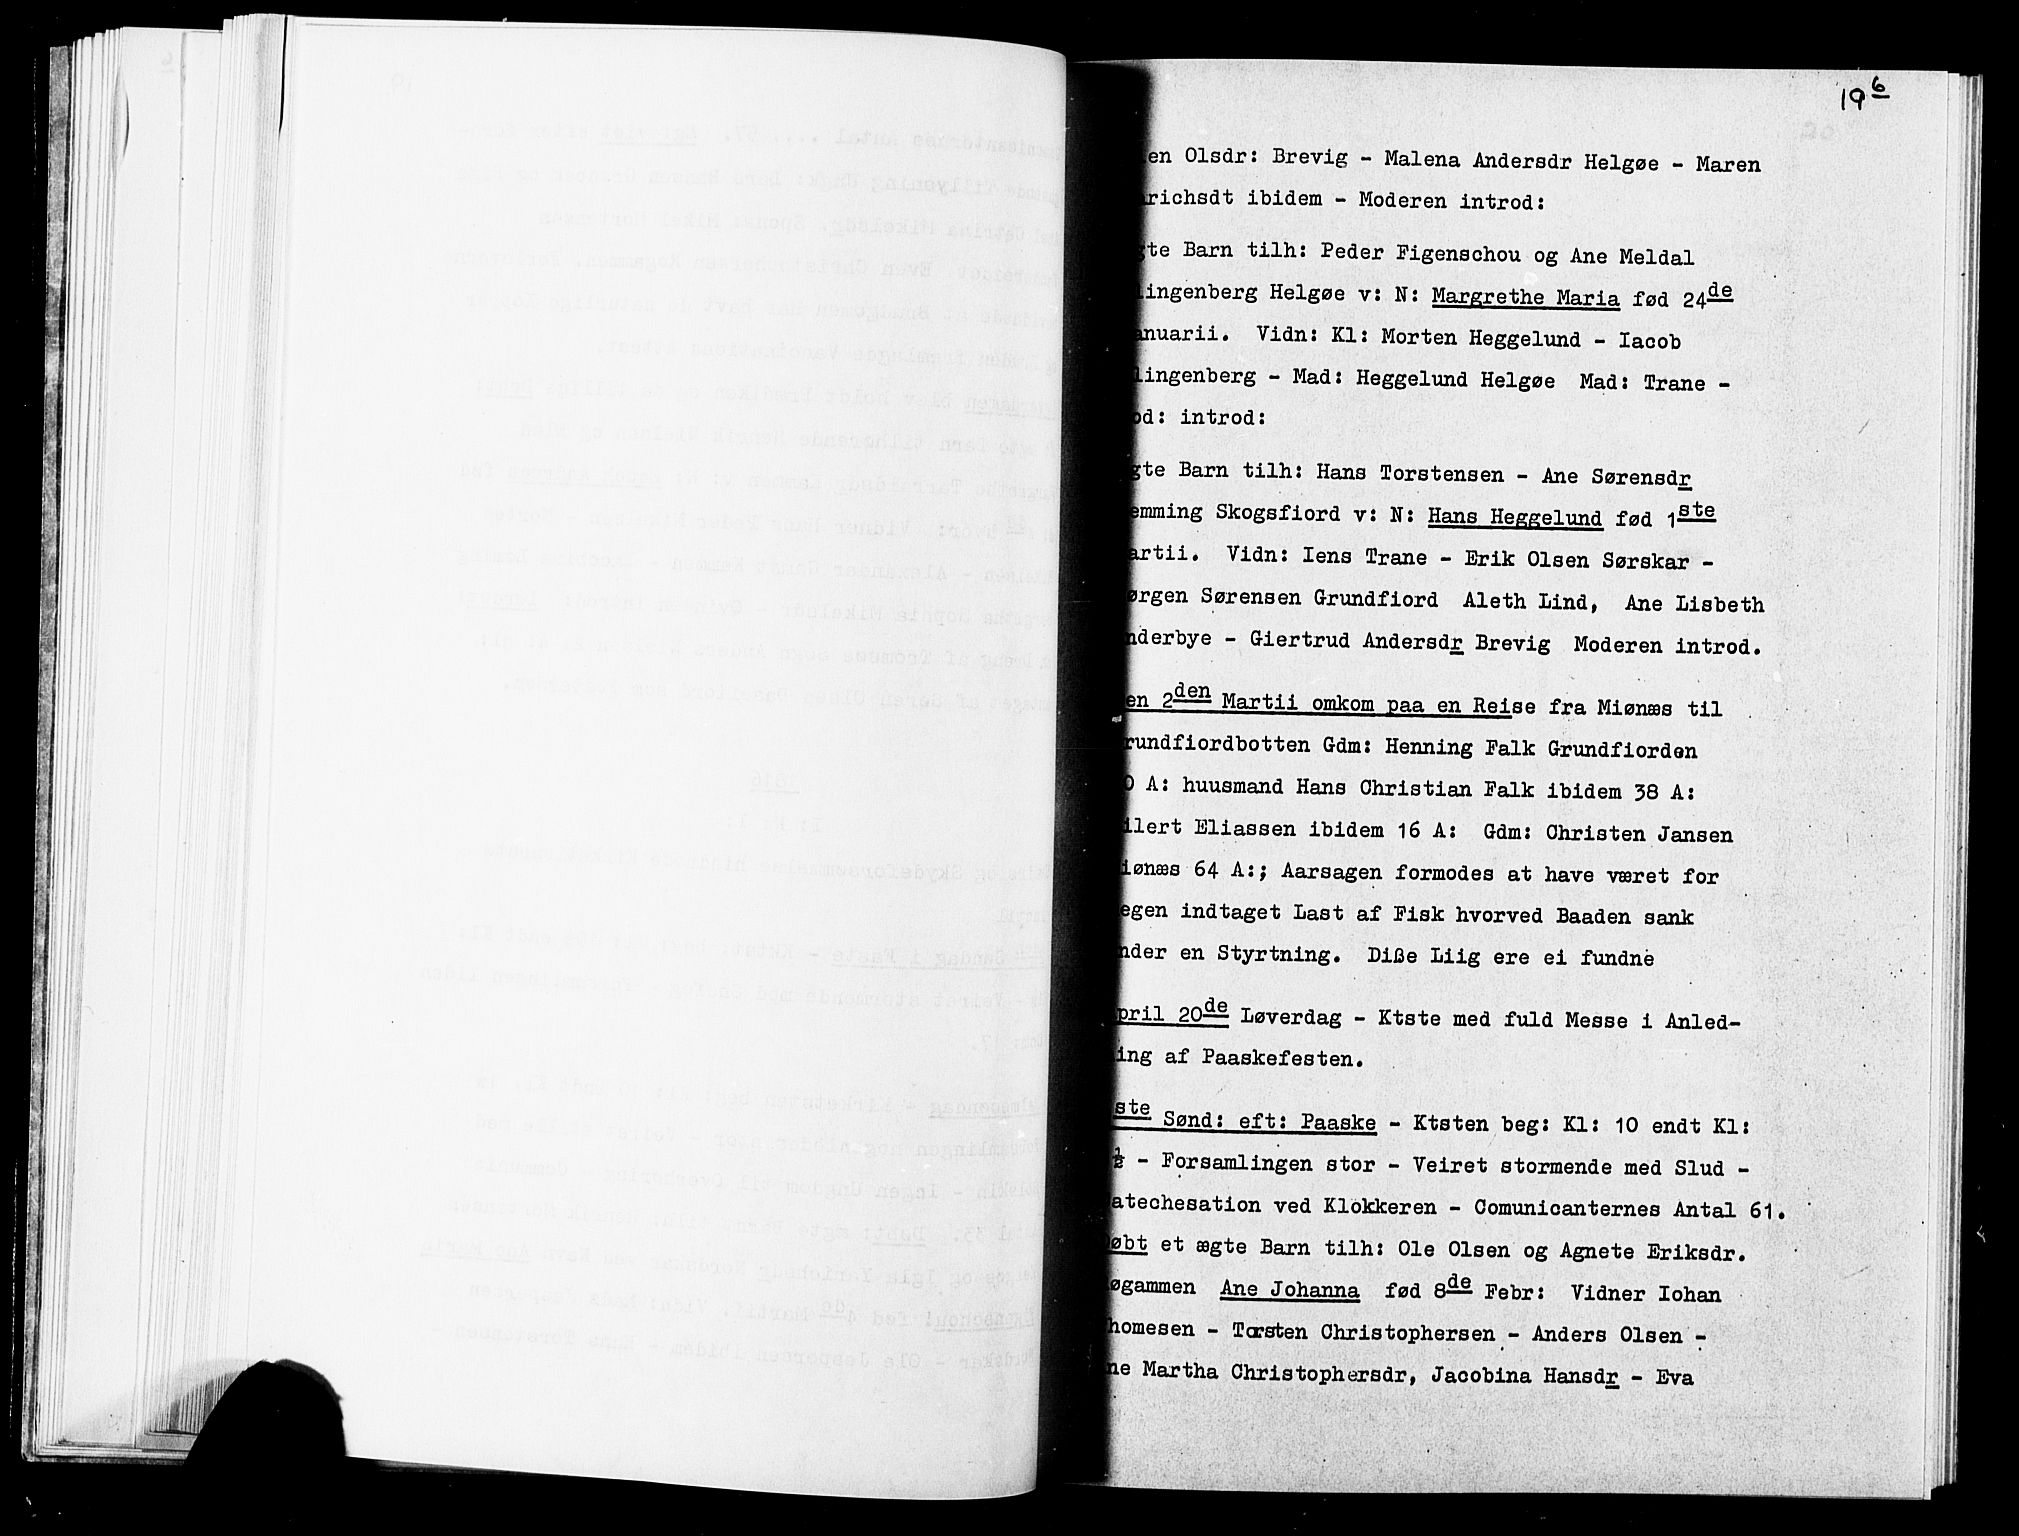 19 6
en Olsdr: Brevig - Malena Andersdr Helgøe - Maren
richsdt ibidem - Moderen introd:
gte Barn tilh: Peder Figenschou og Ane Meldal
lingenberg Helgøe v: N: Margrethe Maria fød 24de
anuarii. Vidn: Kl: Morten Heggelund - Iacob
lingenberg - Mad: Heggelund Helgøe Mad: Trane -
od: introd:
gte Barn tilh: Hans Torstensen - Ane Sørensdr
emming Skogsfiord v: N: Hans Heggelund fød 1ste
artii. Vidn: Iens Trane - Erik Olsen Sørskar -
ørgen Sørensen Grundfiord Aleth Lind, Ane Lisbeth
nderbye - Giertrud Andersdr Brevig Moderen introd.
en 2den Martii omkom paa en Reise fra Miønæs til
rundfiordbotten Gdm: Henning Falk Grundfiorden
0 A: huusmand Hans Christian Falk ibidem 38 A:
ilert Eliassen ibidem 16 A: Gdm: Christen Jansen
iønæs 64 A:; Aarsagen formodes at have været for
egen indtaget Last af Fisk hvorved Baaden sank
nder en Styrtning. Diße Liig ere ei fundne
pril 20de Løverdag - Ktste med fuld Messe i Anled-
ing af Paaskefesten.
ste Sønd: eft: Paaske - Ktsten beg: Kl: 10 endt Kl:
½ - Forsamlingen stor - Veiret stormende med Slud -
atechesation ved Klokkeren - Comunicanternes Antal 61.
øbt et ægte Barn tilh: Ole Olsen og Agnete Eriksdr.
øgammen Ane Johanna fød 8de Febr: Vidner Iohan
homesen - Torsten Christophersen - Anders Olsen -
ne Martha Christophersdr, Jacobina Hansdr - Eva